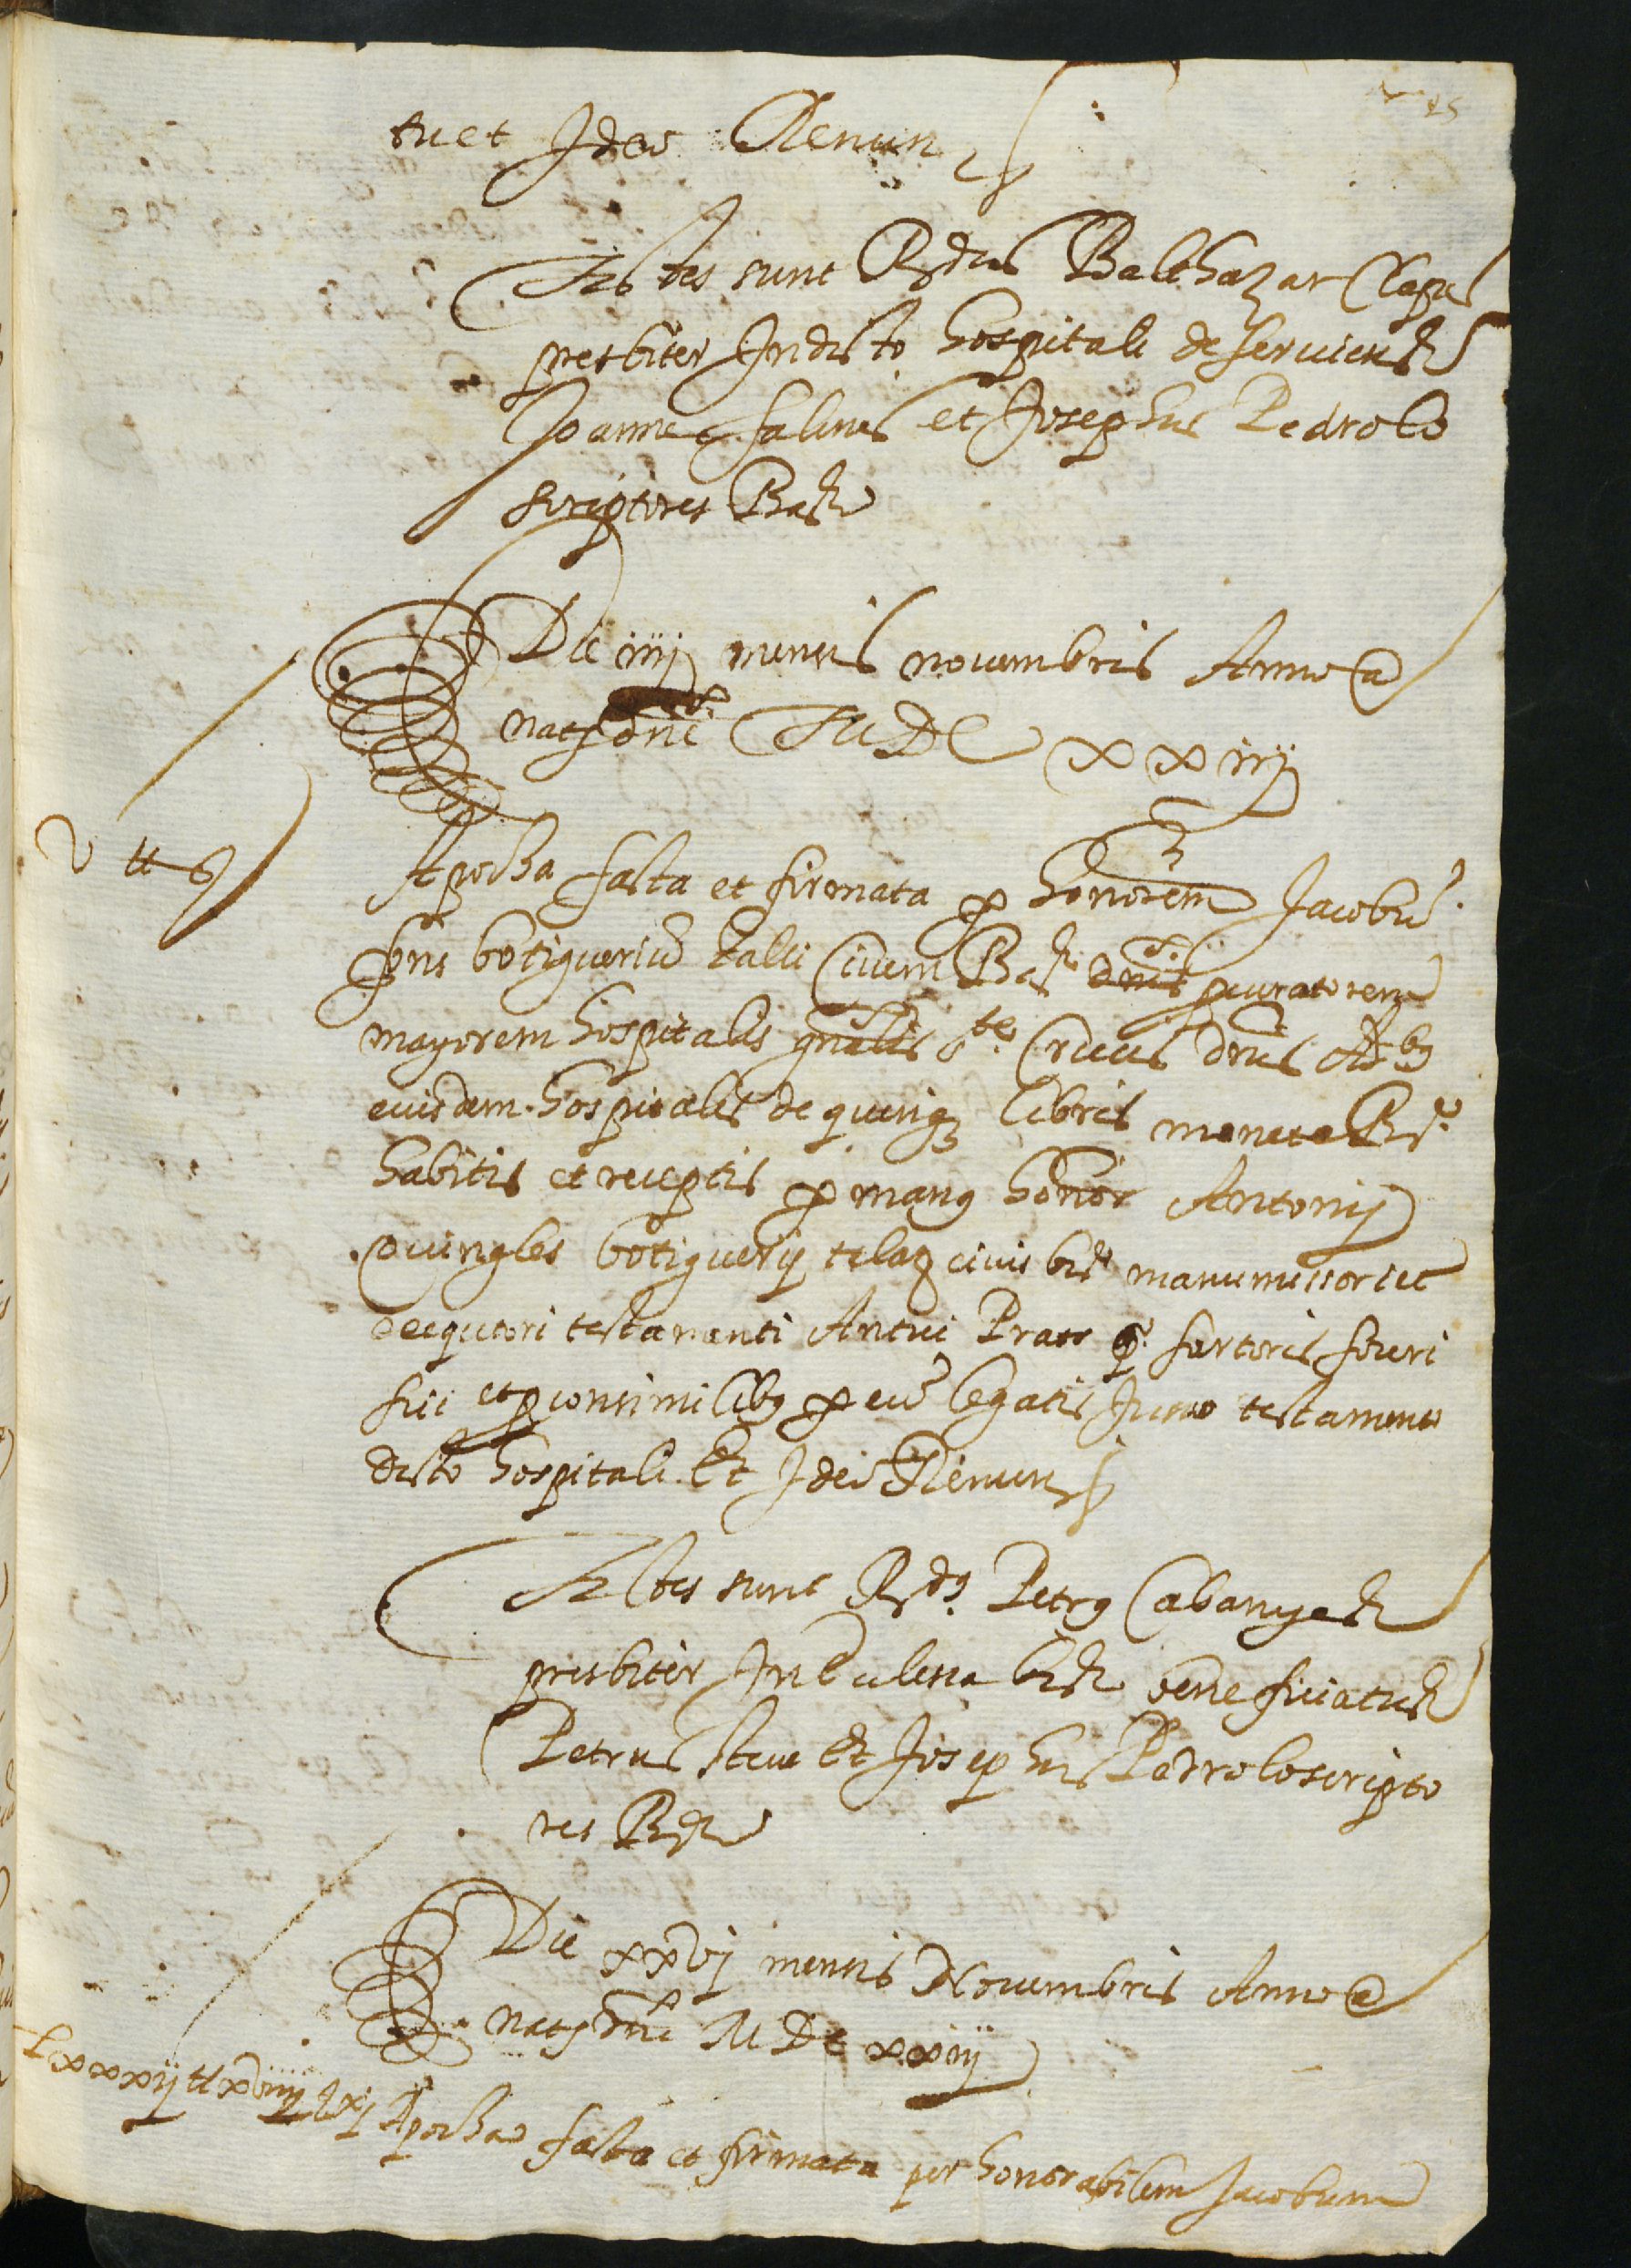 25
tu et Ideo Renun
Testes sunt Rdus Balthazar Clapes
presbiter In dicto hospitali deserviens
Joannes salines et Josephus Pedrolo
scriptores Barne
Die iiij mensis novembris Anno a
natte dni MDC xxiiij
v ll s
Apocha facta et firmata p honorem Jacobu
fons botigueriu talli Civem Bar procuratorem
mayorem hospitalis gnalis ste Crucis dnis Adbus
eiusdem hospitalis de quinq libris moneta Bar
habitis et receptis p manus honor Antonij
botiguerij telaz civis bar manumissor sue
exequtori testamenti Antici Prats q sartoris soceri
sui et p consimilibus p eu legatis In suo testamento
dicto hospitali Et Ideo Renun
Testes sunt Rdus Petrus Cabanyes
presbiter In Eclesia bar beneficiatus
Petrus et Josephus Pedrolo scripto
res Bar
Die xxvj mensis Novembris Anno a
natte dni MDC xxiiij
Lxxxxij ll xviiij s xj
Apocha facta et firmata per honorabilem Jacobum